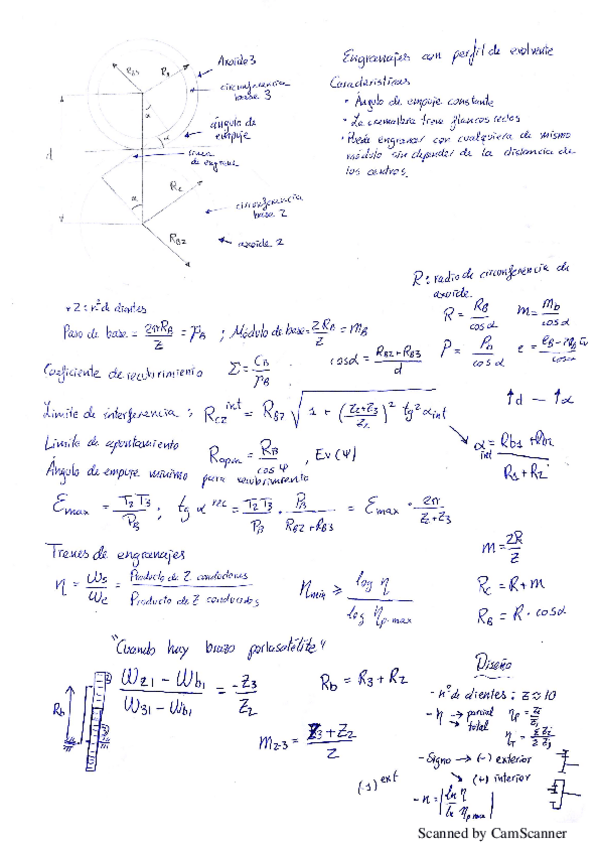 Engranajes con perfil de evolvente
Características
• Ángulo de empuje constante
• La cremallera tiene flancos rectos
• Puede engranar con cualquiera de mismo
módulo sin depender de la distancia de
los centros.
R_B3
R_3
Axoide 3
circunferencia
base 3
α
ángulo de
empuje
línea
de engrane
d
α
R_2
circunferencia
base 2
R_B2
axoide 2
R: radio de circunferencia de
axoide.
R = R_B / cosα m = m_b / cosα
* Z: nº de dientes
Paso de base = 2πR_B / Z = P_B ; Módulo de base = 2R_B / Z = m_B
cosα = (R_B2 + R_B3) / d
P = P_B / cosα
Coeficiente de recubrimiento Σ = C_B / P_B
↑d – ↑α
Límite de interferencia : R_C2^int = R_B2 √(1 + ((Z_2+Z_3)/Z_2)² tg² α_int)
α_int = (R_b1 + R_b2) / (R_1 + R_2)
Límite de apuntamiento R_apun = R_B / cos Ψ , Ev(Ψ)
Ángulo de empuje mínimo para recubrimiento
Ɛ_max = T_2T_3 / P_B ; tg α^rec = T_2T_3 / P_B · P_B / (R_B2 + R_B3) = Ɛ_max · 2π / (Z_2+Z_3)
m = 2R / Z
Trenes de engranajes
η = ω_s / ω_e = Producto de Z conductoras / Producto de Z conducidos
n_min ≥ log η / log η_p.max
R_c = R + m
R_B = R · cosα
"Cuando hay brazo portasatélite"
R_b
(ω_21 – ω_b1) / (ω_31 – ω_b1) = –Z_3 / Z_2
R_b = R_3 + R_2
m_2-3 = (Z_3 + Z_2) / Z
Diseño
- nº de dientes : Z ≈ 10
- η → parcial
→ total
- Signo → (-) exterior
(+) interior
(-1)^ext
- n = | ln η / ln η_p max |
Scanned by CamScanner